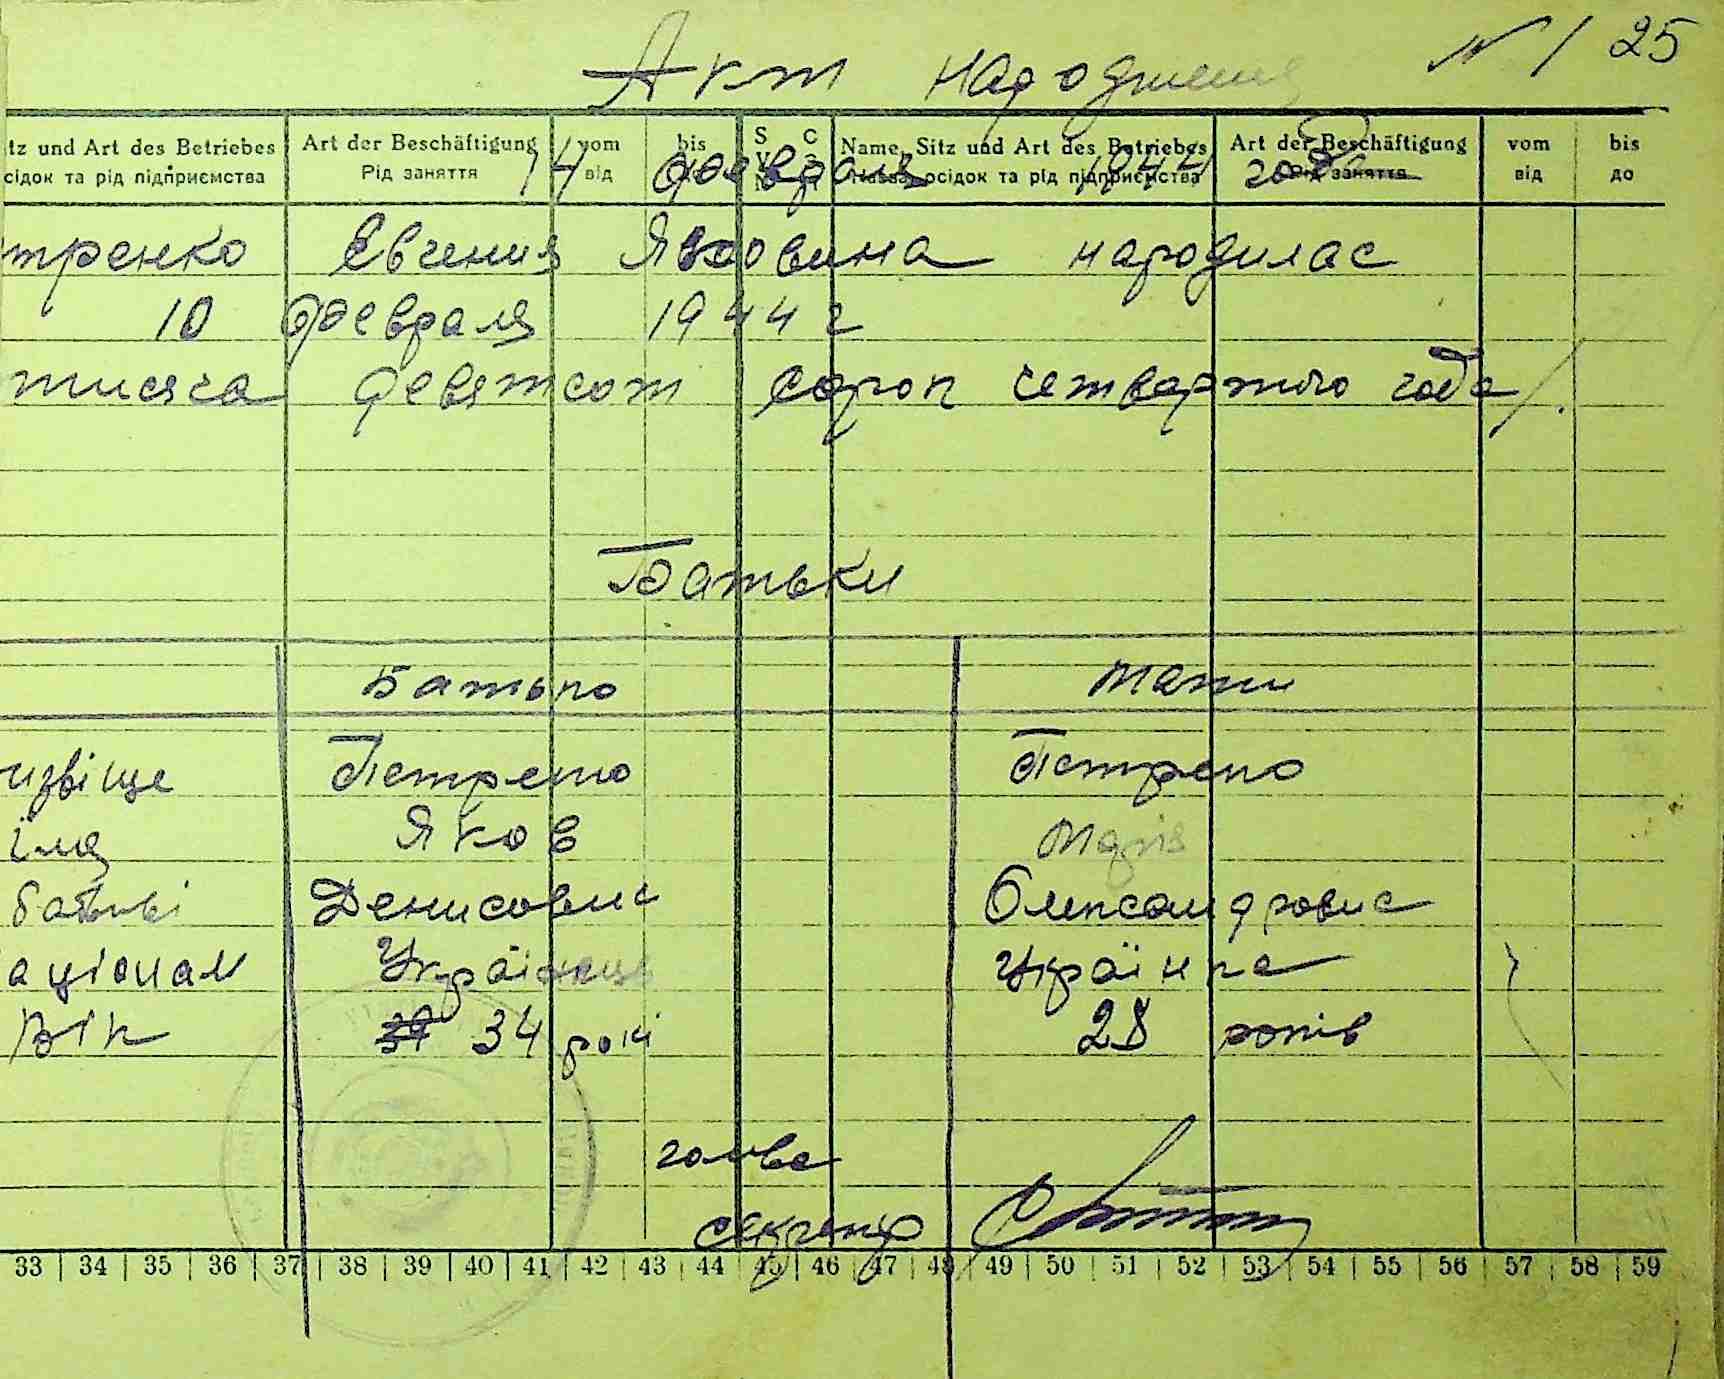 Акт народження № 1 25
tz und Art des Betriebes Art der Beschäftigung vom bis S C Name, Sitz und Art des Betriebes Art der Beschäftigung vom bis
сідок та рід підприємства Рід заняття від Назва, осідок та рід підприємства Рід заняття від до
14 февраля 1944 года
тренко Евгения Яковвина народилас
10 февраля 1944 г
тисяча девятсот сорок четвартого года
Батьки
Батько Мати
извіще Петренко Петренко
імя Яков Марія
батьк
ві Денисович Олександровна
аціонал Українець Українка
Вік 34 рокі 28 років
голова
секретар
33 34 35 36 37 38 39 40 41 42 43 44 45 46 47 48 49 50 51 52 53 54 55 56 57 58 59